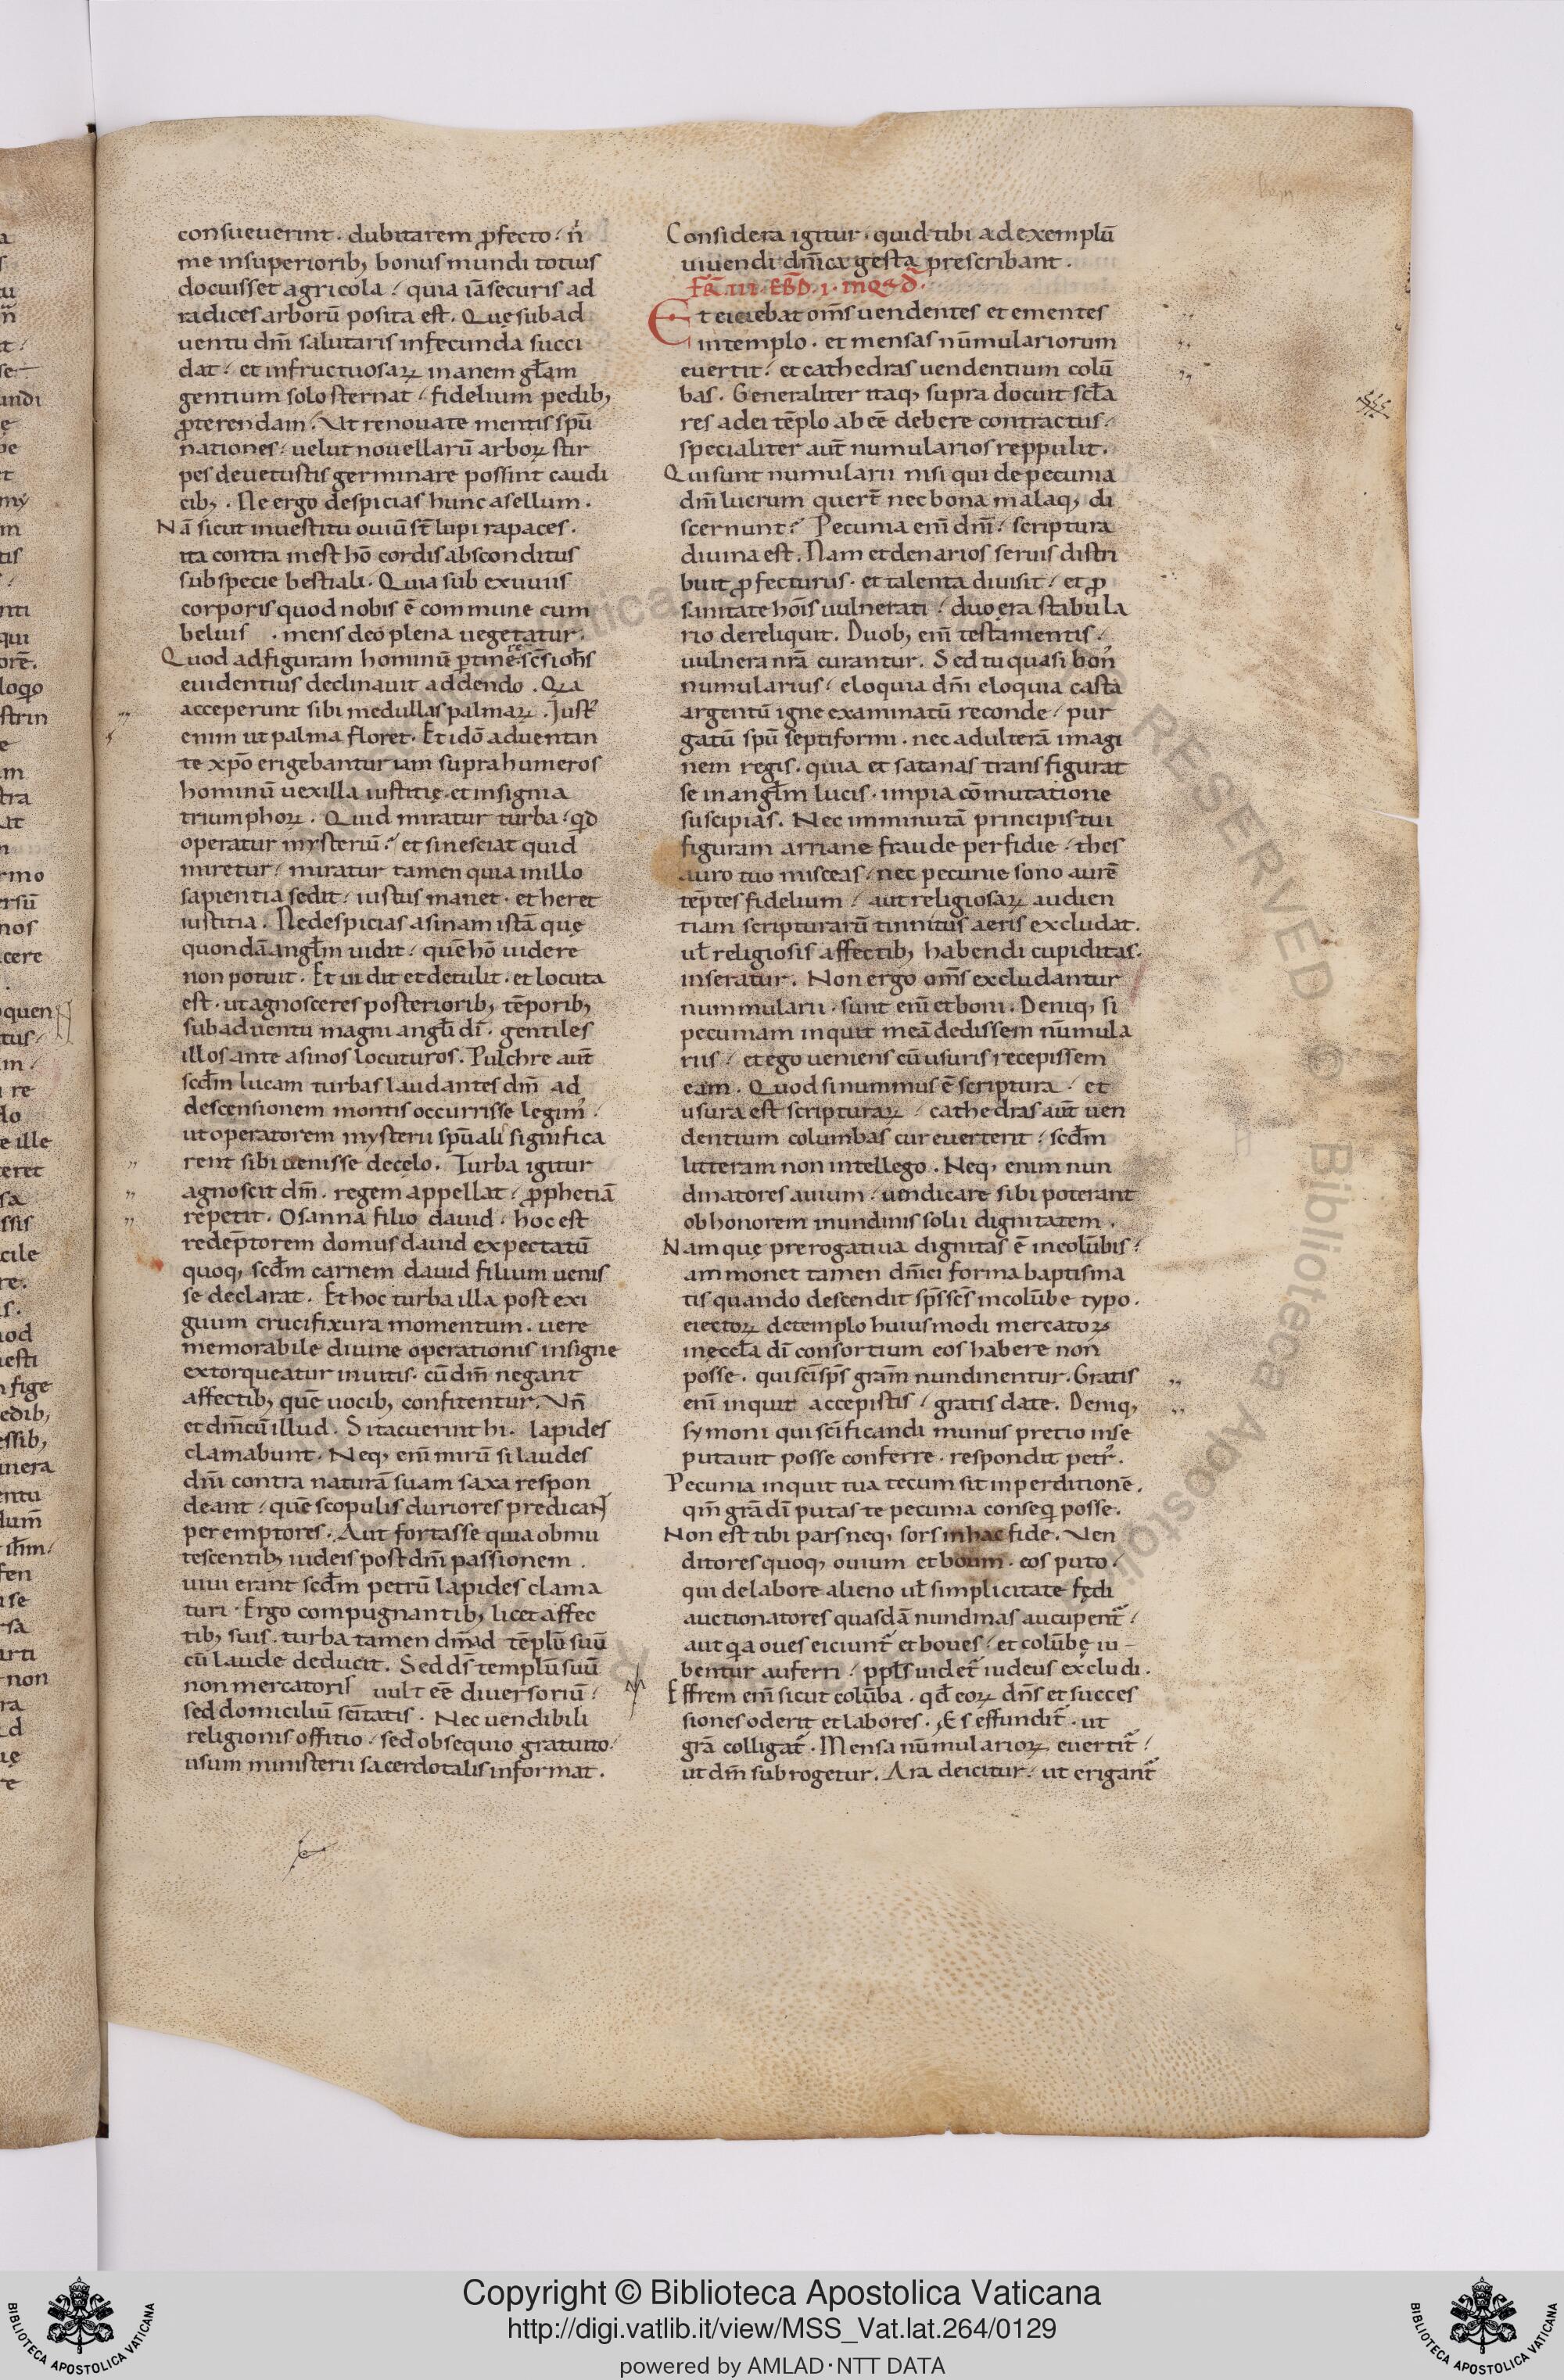 consueuerint. dubitarem ꝓfecto / ń
me insuperiorib; bonus mundi totius
docuisset agricola / quia iā securis ad
radices arborū posita est. Quę sub ad
uentu dn̄i salutaris infecunda succi
dat / et infructuosaꝝ inanem gl̄am
gentium solo sternat / fidelium pedib;
ꝓterendam. Vt renouate mentis spū
nationes / uelut nouellarū arboꝝ stir
pes deuetustis germinare possint caudi
cib;. Ne ergo despicias hunc asellum.
Nā sicut inuestitu ouiū st̄ lupi rapaces.
ita contra inest hō cordis absconditus
sub specie bestiali. Quia sub exuuiis
corporis quod nobis ē commune cum
beluis . mens deo plena uegetatur.
Quod adfiguram hominū ꝑtinere sc̄s ioh̄s
euidentius declinauit addendo. Qia
acceperunt sibi medullas palmaꝝ. Iust᷒
enim ut palma floret. Et idō aduentan
te xp̄o erigebantur iam supra humeros
hominū uexilla iustitię et insignia
triumphoꝝ. Quid miratur turba / qd̄
operatur mysteriū? et si nesciat quid
miretur / miratur tamen quia in illo
sapientia sedit / iustus manet. et heret
iustitia. Ne despicias asinam istā quę
quondā angl̄m uidit / quē hō uidere
non potuit. Et uidit et detulit. et locuta
est. ut agnosceres posteriorib; tēporib;
sub aduentu magni angl̄i dī. gentiles
illos ante asinos locuturos. Pulchre aut̄
scd̄m lucam turbas laudantes dn̄m ad
descensionem montis occurrisse legim᷒ /
ut operatorem mysterii spūali significa
rent sibi uenisse de cęlo. Turba igitur
agnoscit dn̄m. regem appellat / ꝓphetiā
repetit. Osanna filio dauid. hoc est
redeptorem domus dauid expectatū
quoq; scd̄m carnem dauid filium uenis
se declarat. Et hoc turba illa post exi
guum crucifixura momentum. uere
memorabile diuine operationis insigne
extorqueatur inuitis. cū dn̄m negant
affectib; quē uocib; confitentur. Vn̄
et dn̄icū illud. Si tacuerint hi. lapides
clamabunt. Neq; eni̅ mirū si laudes
dn̄i contra naturā suam saxa respon
deant / quē scopulis duriores predicant
peremptores. Aut fortasse quia obmu
tescentib; iudeis post dn̄i passionem.
uiui erant scd̄m petrū lapides clama
turi. Ergo compugnantib; licet affec
tib; suis. turba tamen dn̄m ad tēplū suū
cū laude deducit. Sed ds̄ templū suū
non mercatoris uult eē diuersoriū /
sed domiciliū sc̄itatis. Nec uendibili
religionis offitio / sed obsequio gratuito /
usum ministerii sacerdotalis informat.
Considera igitur. quid tibi ad exemplū
uiuendi dn̄ica gesta prescribant.
Et eiciebat om̄s uendentes et ementes
in templo. et mensas nūmulariorum
euertit / et cathedras uendentium colū
bas. Generaliter itaq; supra docuit scl̄a
res a dei tēplo ab eē debere contractus /
specialiter aut̄ numularios reppulit.
Qui sunt numularii nisi qui de pecunia
dn̄i lucrum quert̄ nec bona malaq; di
scernunt? Pecunia eni̅ dn̄i / scriptura
diuina est. Nam et denarios seruis distri
buit ꝓfecturus. et talenta diuisit / et ꝓ
sanitate hōis uulnerati / duo era stabula
rio dereliquit. Duob; eni̅ testamentis /
uulnera nr̄a curantur. Sed tu quasi bon᷒
numularius / eloquia dn̄i eloquia casta
argentū igne examinatū reconde / pur
gatū spū septiformi. nec adulterā imagi
nem regis. quia et satanas transfigurat
se in angl̄m lucis. impia cōmutatione
suscipias. Nec imminutā principis tui
figuram arriane fraude perfidie / thes
auro tuo misceas / nec pecunie sono aurē
tēptes fidelium / aut religiosaꝝ audien
tiam scripturarū tinnitus aeris excludat.
ul̄ religiosis affectib; habendi cupiditas.
inseratur. Non ergo om̄s excludantur
nummularii. sunt eni̅ et boni. Deniq; si
pecuniam inquit meā dedissem nūmula
riis / et ego ueniens cū usuris recepissem
eam. Quod si nummus ē scriptura / et
usura est scripturaꝝ / cathedras aut̄ uen
dentium columbas cur euerterit / scd̄m
litteram non intellego. Neq; enim nun
dinatores auium / uindicare sibi poterant
ob honorem inundinis solii dignitatem.
Namque prerogatiua dignitas ē in colūbis /
ammonet tamen dn̄ici forma baptisma
tis quando descendit sp̄s sc̄s in colūbe typo.
eiectoꝝ de templo huiusmodi mercatoꝝ
in ęccl̄a dī consortium eos habere non
posse. qui sc̄i sp̄s gram̄ nundinentur. Gratis
eni̅ inquit accepistis / gratis date. Deniq;
symoni qui sc̄ificandi munus pretio in se
putauit posse conferre. respondit petr᷒.
Pecunia inquit tua tecum sit in perditionē.
qm̄ gr̄a dī putas te pecunia conseq̄ posse.
Non est tibi pars neq; sors in hac fide. Ven
ditores quoq; ouium et boum. eos puto /
qui de labore alieno ul̄ simplicitate fędi
auctionatores quasdā nundinas aucupent᷒ /
aut qa oues eiciunt᷒ et boues / et colūbę iu
bentur auferri / ppl̄s uidet᷒ iudeus excludi.
Effrem eni̅ sicut colūba. qd̄ eoꝝ dn̄s et succes
siones oderit et labores. Es effundit᷒. ut
gr̄a colligat᷒. Mensa nūmularioꝝ euertit᷒ /
ut dn̄i subrogetur. Ara deicitur / ut erigant᷒
Copyright © Biblioteca Apostolica Vaticana
http://digi.vatlib.it/view/MSS_Vat.lat.264/0129
powered by AMLAD·NTT DATA
BIBLIOTECA APOSTOLICA VATICANA
BIBLIOTECA APOSTOLICA VATICANA